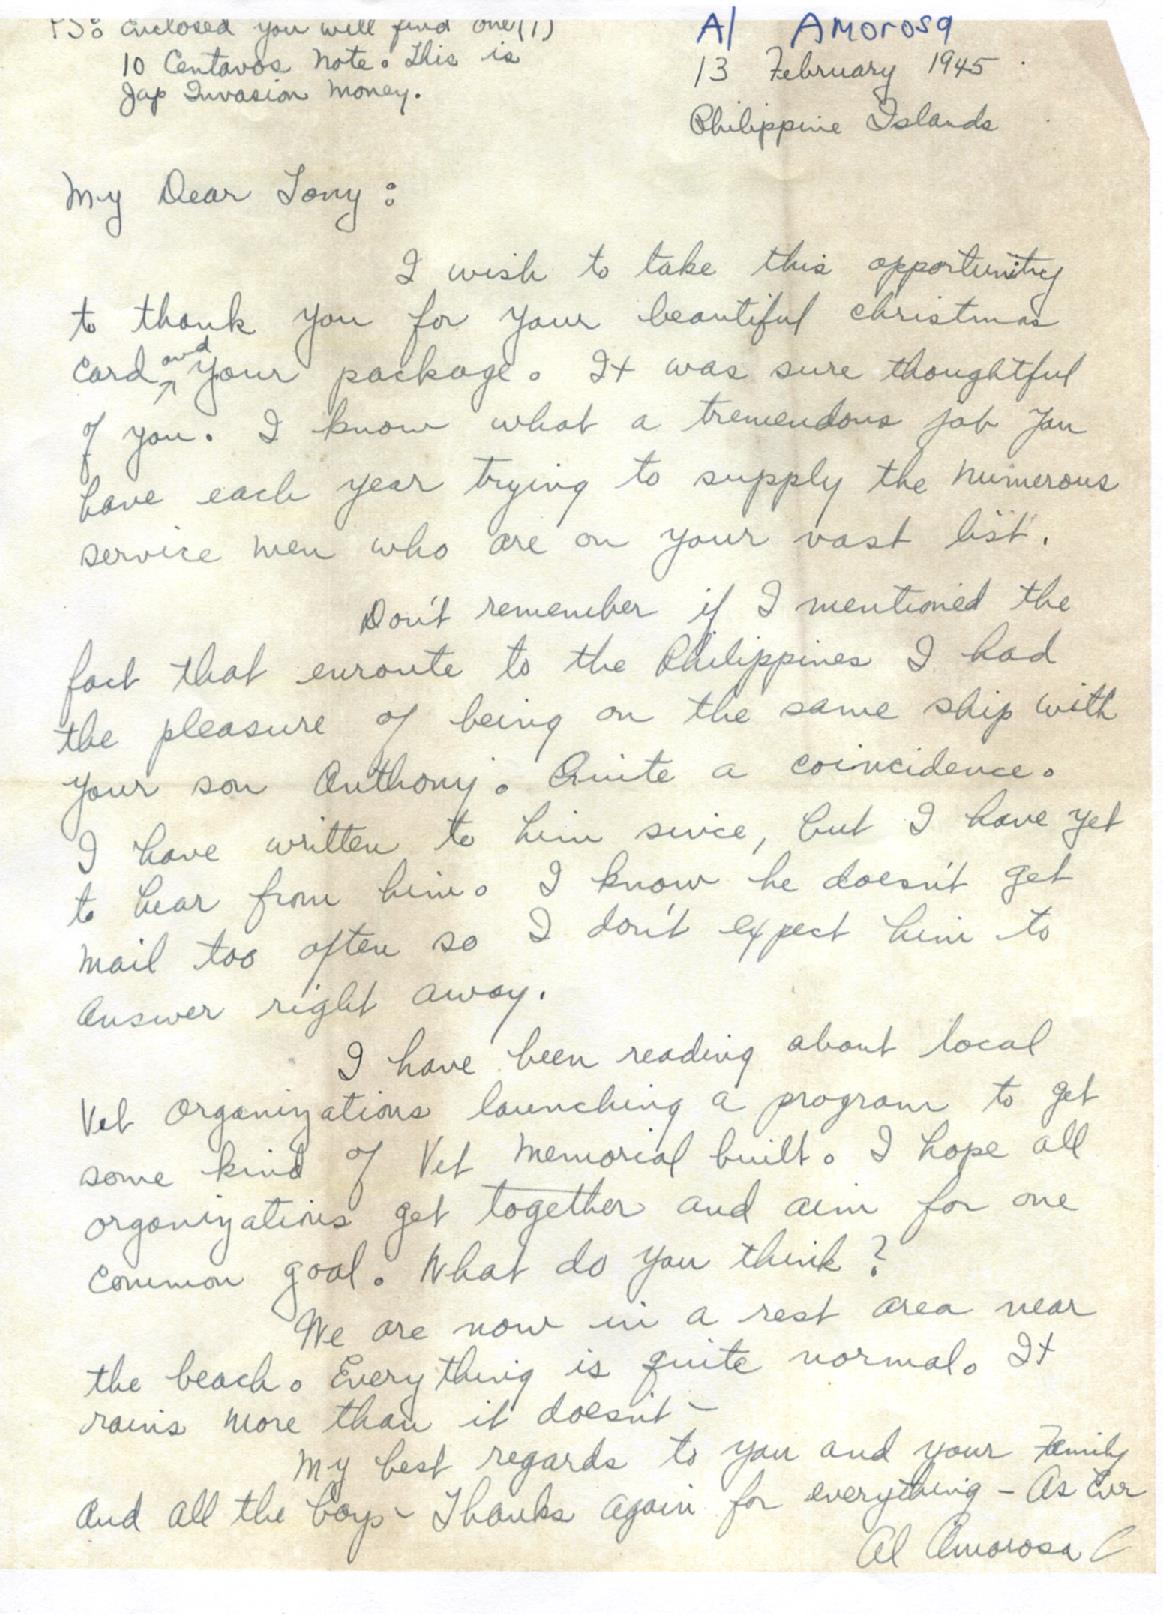 PS: Enclosed you will find one (1)
10 Centavos Note. This is
Jap Invasion Money.
Al Amorosa
13 February 1945
Philippine Islands
My Dear Tony:
I wish to take this opportunity
to thank you for your beautiful christmas
card and your package. It was sure thoughtful
of you. I know what a tremendous job you
have each year trying to supply the numerous
service men who are on your vast list.
Don't remember if I mentioned the
fact that enroute to the Philippines I had
the pleasure of being on the same ship with
your son Anthony. Quite a coincidence.
I have written to him since, but I have yet
to hear from him. I know he doesn't get
mail too often so I don't expect him to
answer right away.
I have been reading about local
Vet organizations launching a program to get
some kind of Vet Memorial built. I hope all
organizations get together and aim for one
common goal. What do you think?
We are now in a rest area near
the beach. Everything is quite normal. It
rains more than it doesn't -
My best regards to you and your Family
and all the boys - Thanks again for everything - As Ever
Al Amorosa